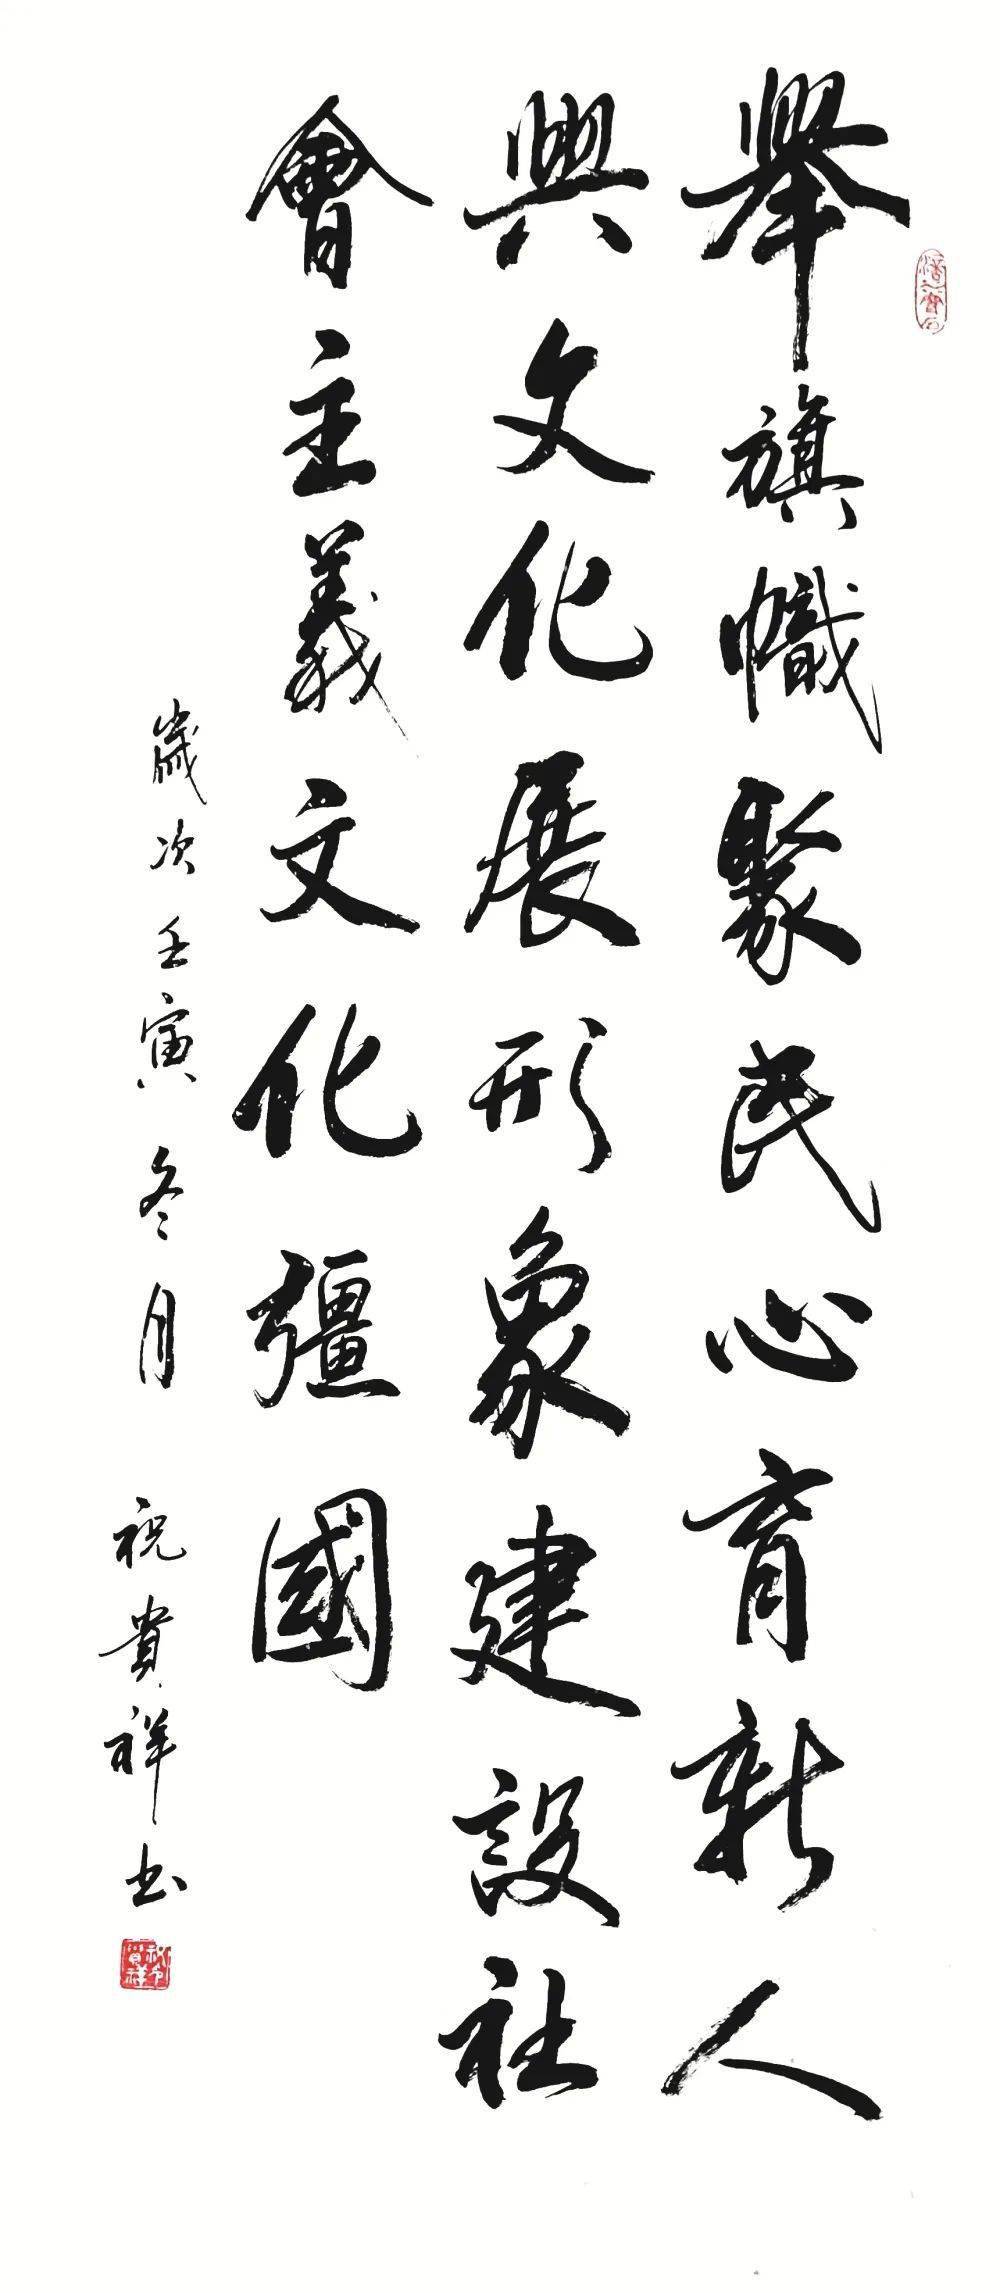 舉旗幟聚民心育新人
興文化展形象建設社
會主義文化彊國
歲次壬寅冬月 祝貴祥书